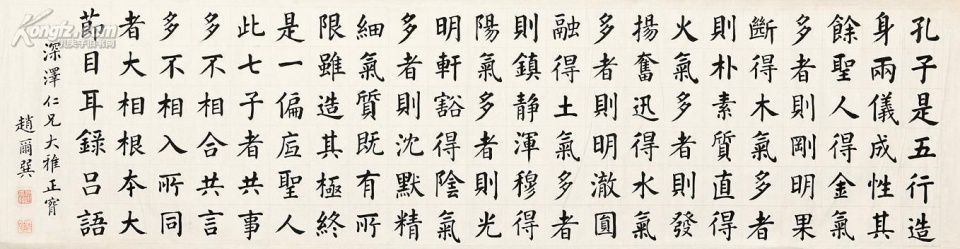 孔子是五行造
身兩儀成性其
餘聖人得金氣
多者則剛明果
斷得木氣多者
則朴素質直得
火氣多者則發
揚奮迅得水氣
多者則明澈圓
融得土氣多者
則鎮静渾穆得
陽氣多者則光
明軒豁得陰氣
多者則沈默精
細氣質既有所
限雖造其極終
是一偏底聖人
此七子者共事
多不相合共言
多不相入所同
者大相根本大
節目耳錄呂語
深澤仁兄大雅正
趙爾巽